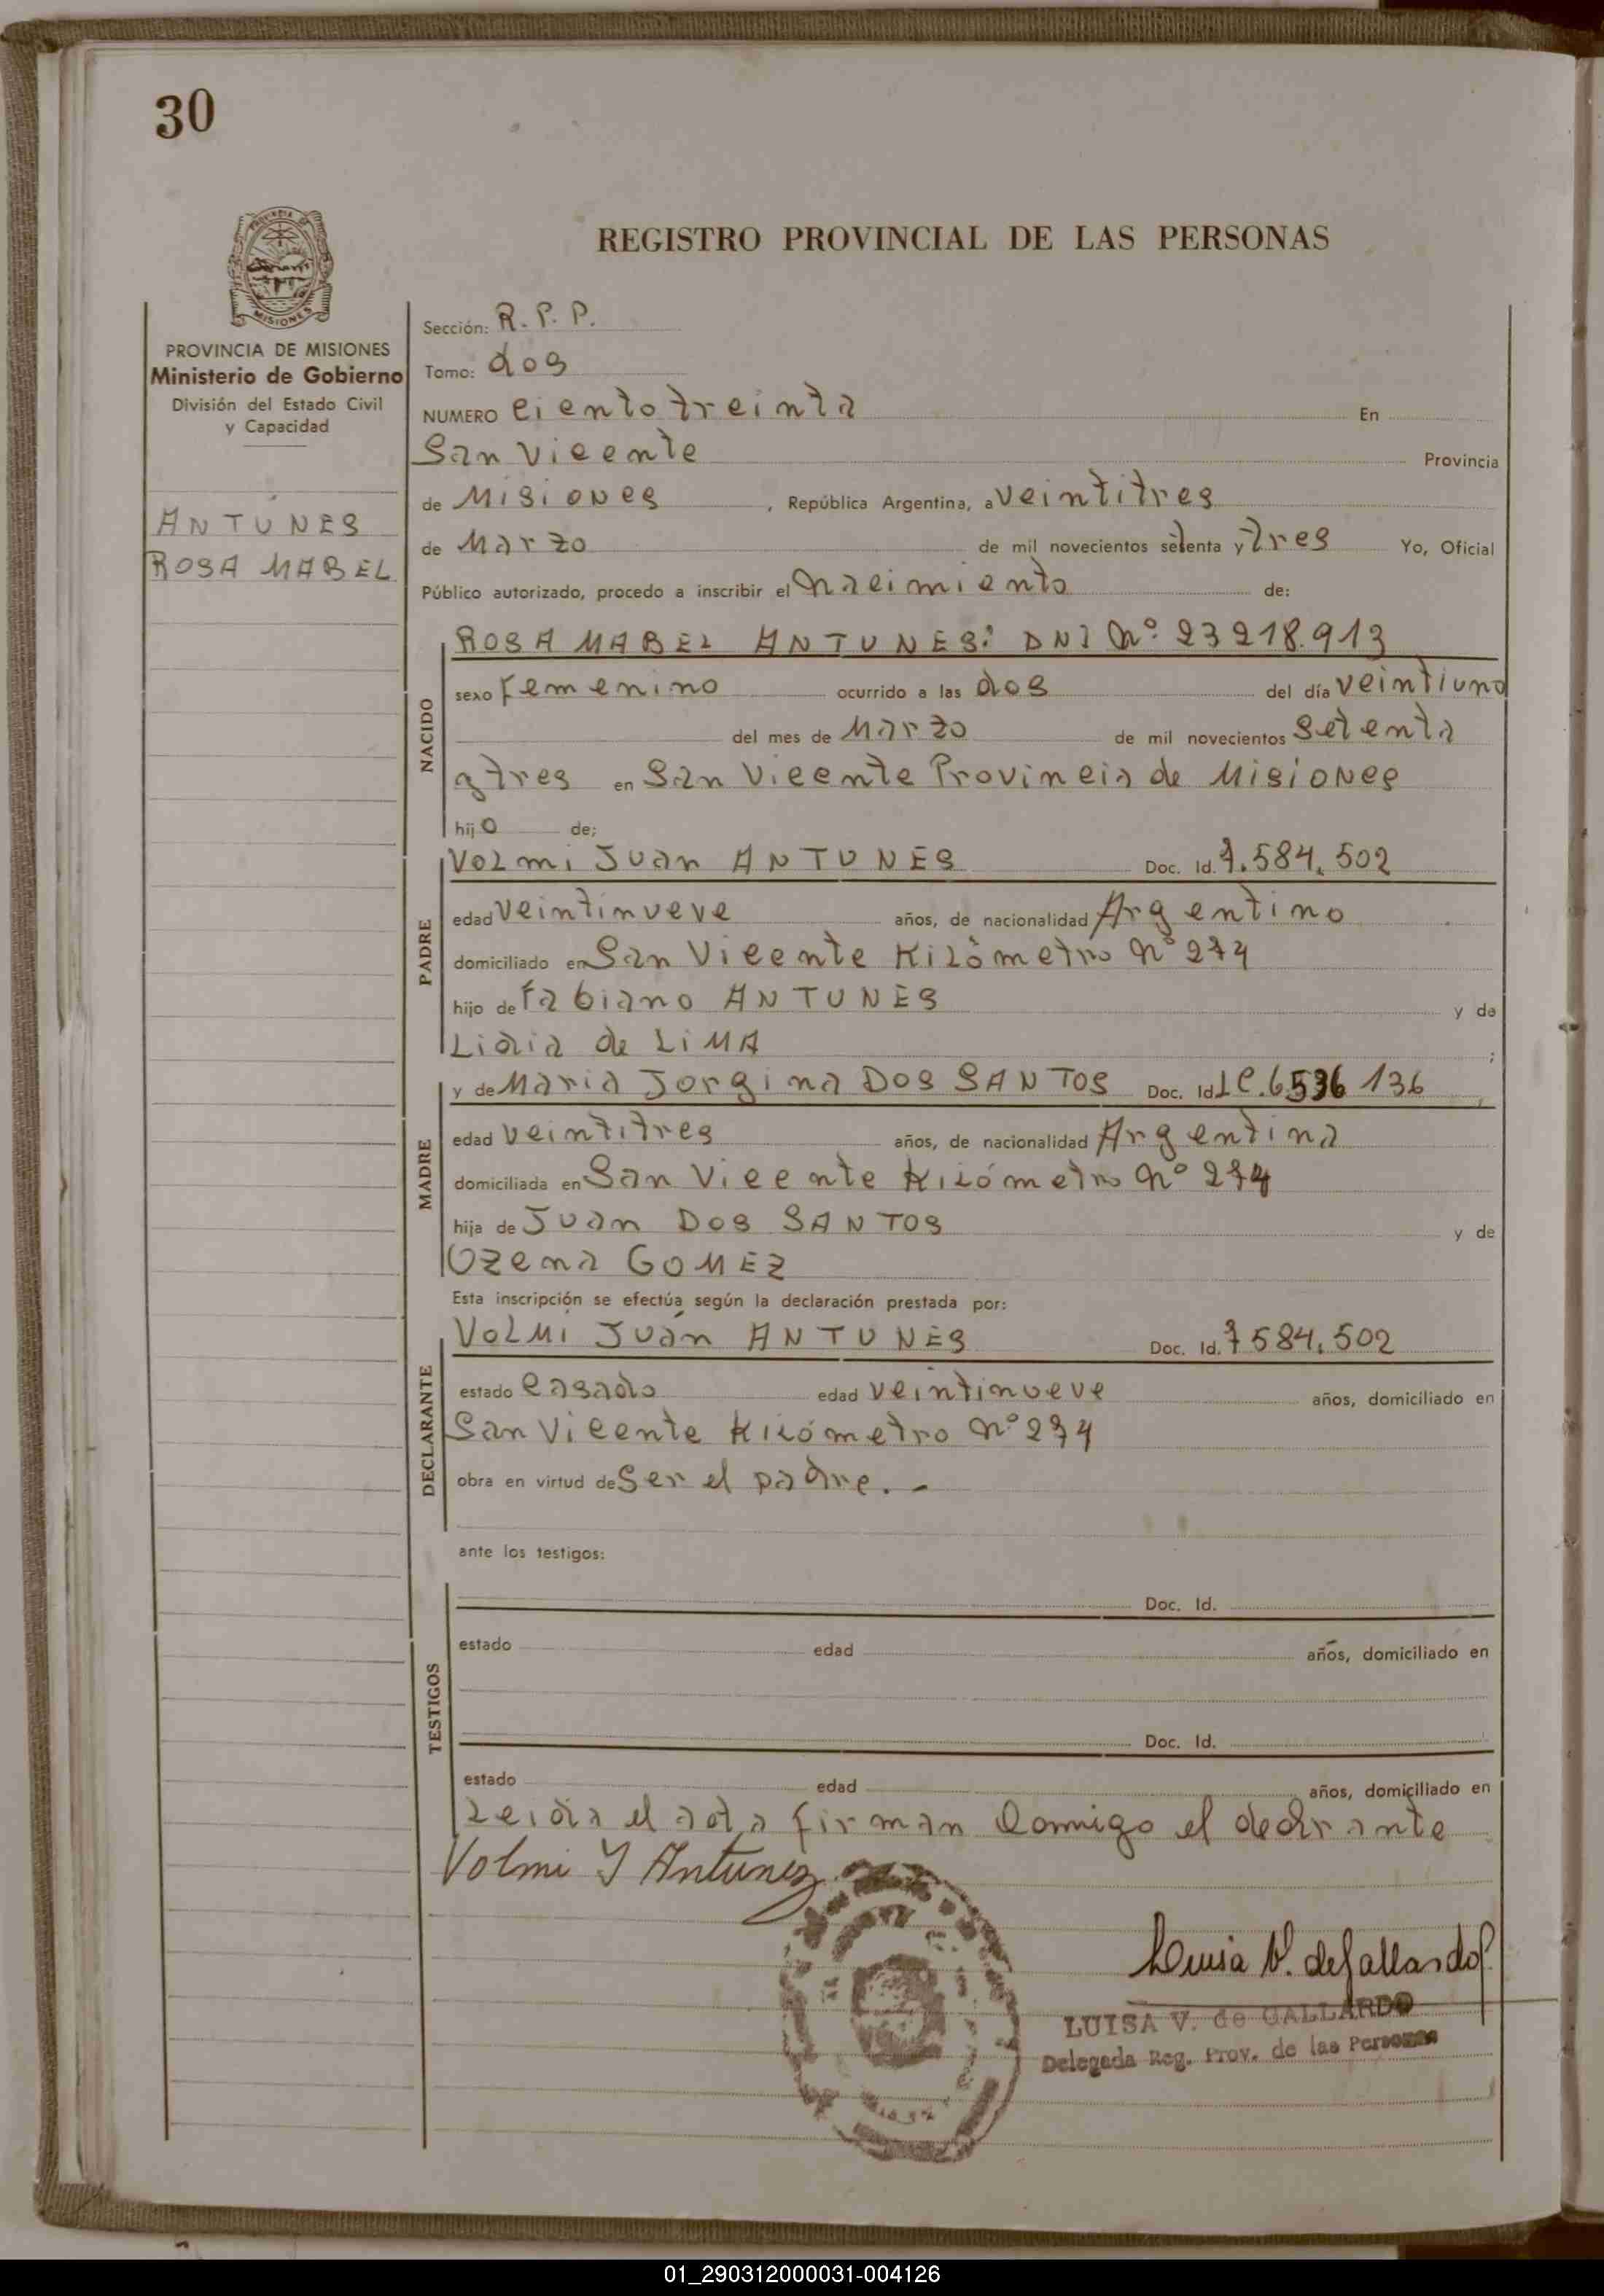 30
REGISTRO PROVINCIAL DE LAS PERSONAS
PROVINCIA DE MISIONES
Ministerio de Gobierno
División del Estado Civil
y Capacidad
ANTUNES
ROSA MABEL
Sección: R.P.P.
Tomo: dos
NUMERO ciento treinta En
San Vicente Provincia
de Misiones, República Argentina, a veintitres
de Marzo de mil novecientos setenta y tres Yo, Oficial
Público autorizado, procedo a inscribir el nacimiento de:
NACIDO
ROSA MABEL ANTUNES: DNI Nº 23218.913
sexo Femenino ocurrido a las dos del día veintiuno
del mes de Marzo de mil novecientos setenta
y tres en San Vicente Provincia de Misiones
hijo de;
PADRE
Volmi Juan ANTUNES Doc. Id. 7.584.502
edad veintinueve años, de nacionalidad Argentino
domiciliado en San Vicente Kilómetro Nº 274
hijo de Fabiano ANTUNES y de
Lidia de LiMA ;
MADRE
y de Maria Jorgina DOS SANTOS Doc. Id. LC.6536136
edad veintitres años, de nacionalidad Argentina
domiciliada en San Vicente Kilómetro Nº 274
hija de Juan DOS SANTOS y de
Ozema GOMEZ
Esta inscripción se efectúa según la declaración prestada por:
DECLARANTE
VOLMI Juan ANTUNES Doc. Id. 7584.502
estado casado edad veintinueve años, domiciliado en
San Vicente Kilómetro Nº 274
obra en virtud de Ser el padre.-
ante los testigos:
TESTIGOS
Doc. Id.
estado edad años, domiciliado en
Doc. Id.
estado edad años, domiciliado en
Leida el acta firman Conmigo el declarante
Volmi J Antunez
Luisa V. de Gallardo
LUISA V. de GALLARDO
Delegada Reg. Prov. de las Personas
01_290312000031-004126